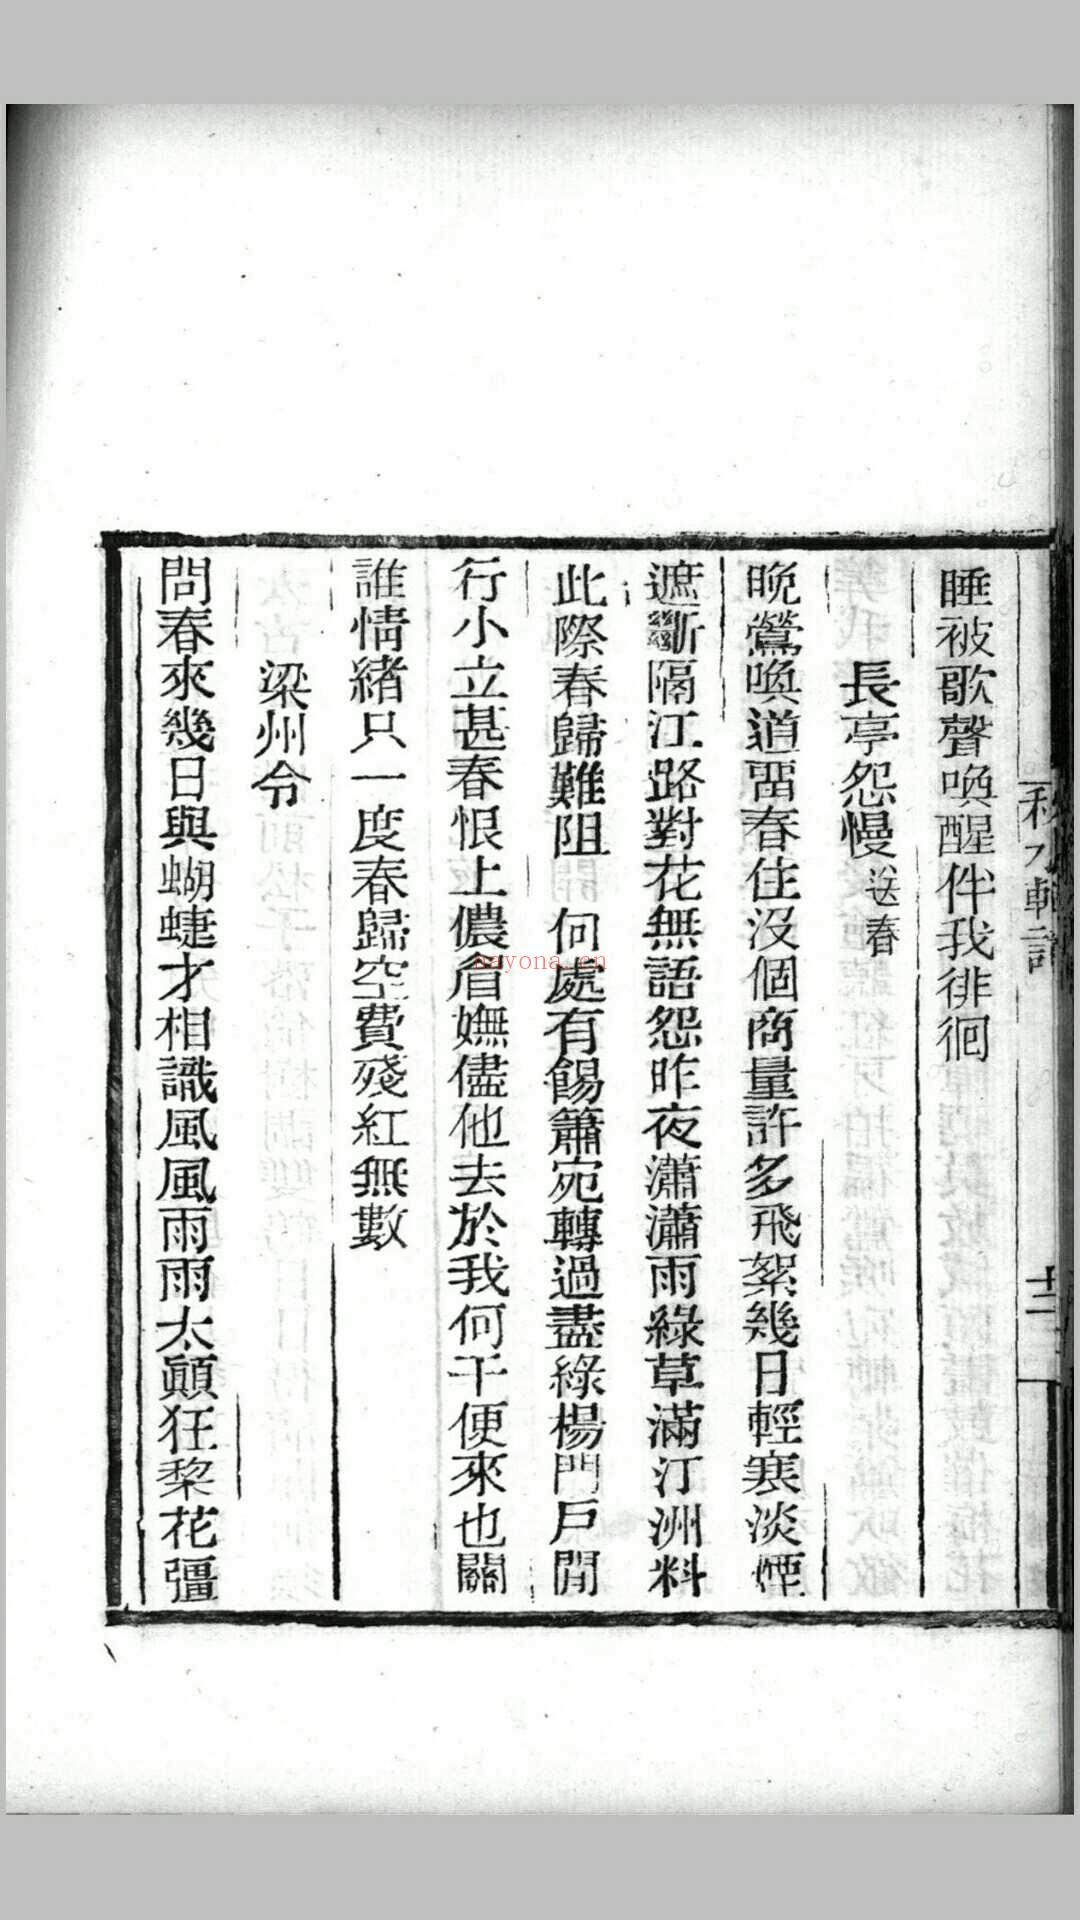 睡被歌聲喚醒伴我徘徊
長亭怨慢 送春
晚鶯喚道畱春住沒個商量許多飛絮幾日輕寒淡煙
遮斷隔江路對花無語怨昨夜瀟瀟雨綠草滿汀洲料
此際春歸難阻 何處有餳簫宛轉過盡綠楊門戶閒
行小立甚春恨上儂眉嫵儘他去於我何干便來也關
誰情緒只一度春歸空費殘紅無數
梁州令
問春來幾日與蝴蜨才相識風風雨雨太顛狂棃花彊
十二
nayona.cn